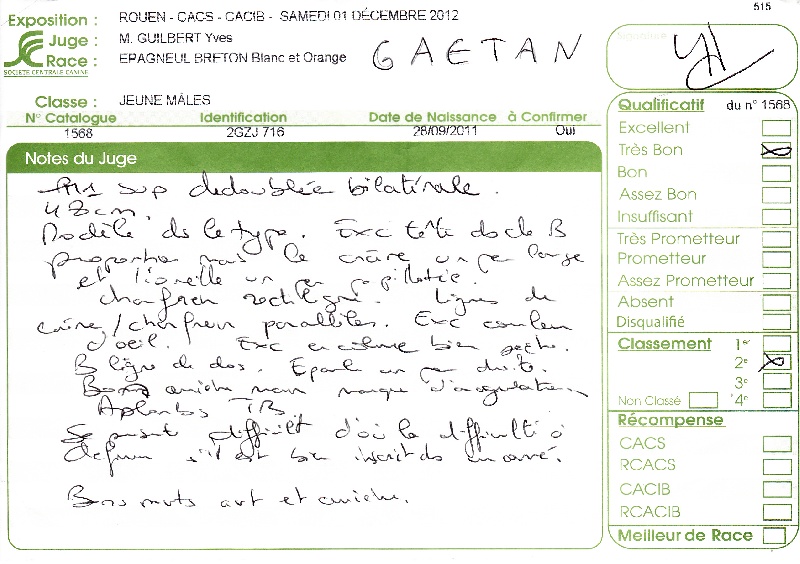 515
Exposition : ROUEN - CACS - CACIB - SAMEDI 01 DÉCEMBRE 2012
Juge : M. GUILBERT Yves
Race : EPAGNEUL BRETON Blanc et Orange
GAETAN
SOCIÉTÉ CENTRALE CANINE
Signature
Classe : JEUNE MÂLES
N° Catalogue Identification Date de Naissance à Confirmer
1568 2GZJ 716 28/09/2011 Oui
Notes du Juge
sup dedoublée bilatérale.
48cm.
Modèle ds le type. Exc tête ds de B
proportion mais le crâne un peu large
et l'oreille un peu papillotée.
chanfrein rectiligne. Lignes du
crâne/chanfrein parallèles. Exc couleur
d'oeil. Exc encolure bien sèche.
B ligne de dos. Epaule un peu droite.
arrière main manque d'angulation
Aplombs TB.
Se présente difficilt d'où la difficulté à
définir s'il est bien inscrit ds un carré.
Bons mvts avt et arrière.
Qualificatif du n° 1568
Excellent
Très Bon
Bon
Assez Bon
Insuffisant
Très Prometteur
Prometteur
Assez Prometteur
Absent
Disqualifié
Classement 1er
2e
3e
Non Classé 4e
Récompense
CACS
RCACS
CACIB
RCACIB
Meilleur de Race